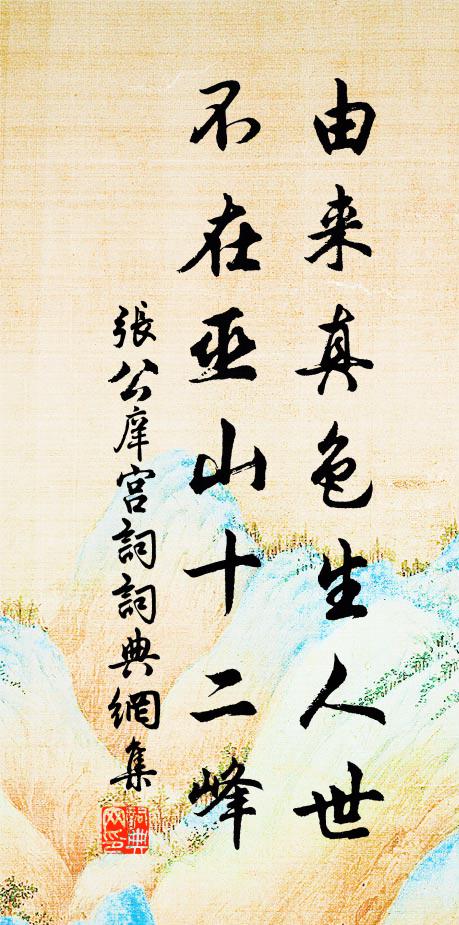 由来真色生人世
不在巫山十二峰
張公庠宫詞詞典網集
詞典網印